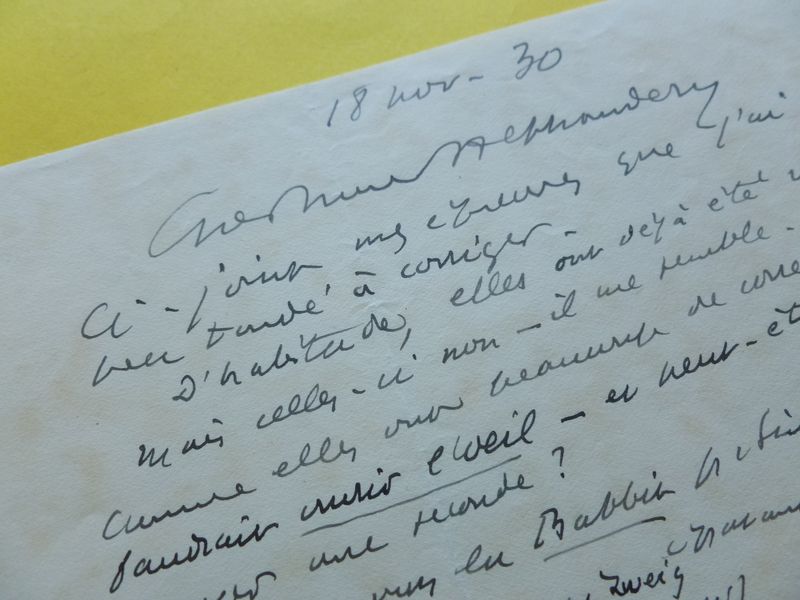 18 nov - 30
Cher Monsieur Alphandéry
Ci-joint mes épreuves que j'ai
peu tardé à corriger -
D'habitude, elles ont déjà été
mais celles-ci non - il me semble -
comme elles ont beaucoup de
faudrait ouvrir l'oeil - et peut-êt
une seconde ?
vous lu Babbit
Zweig